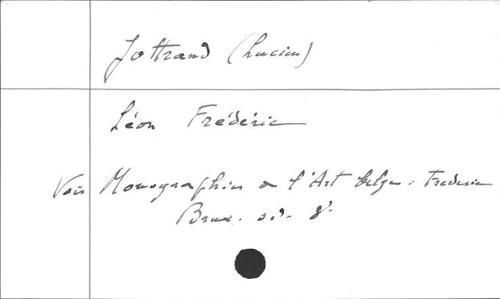 Jottrand (Lucien)
Léon Frédéric
Voir Monographies de l'Art belge : Frederic
Brux. s.d. 8°